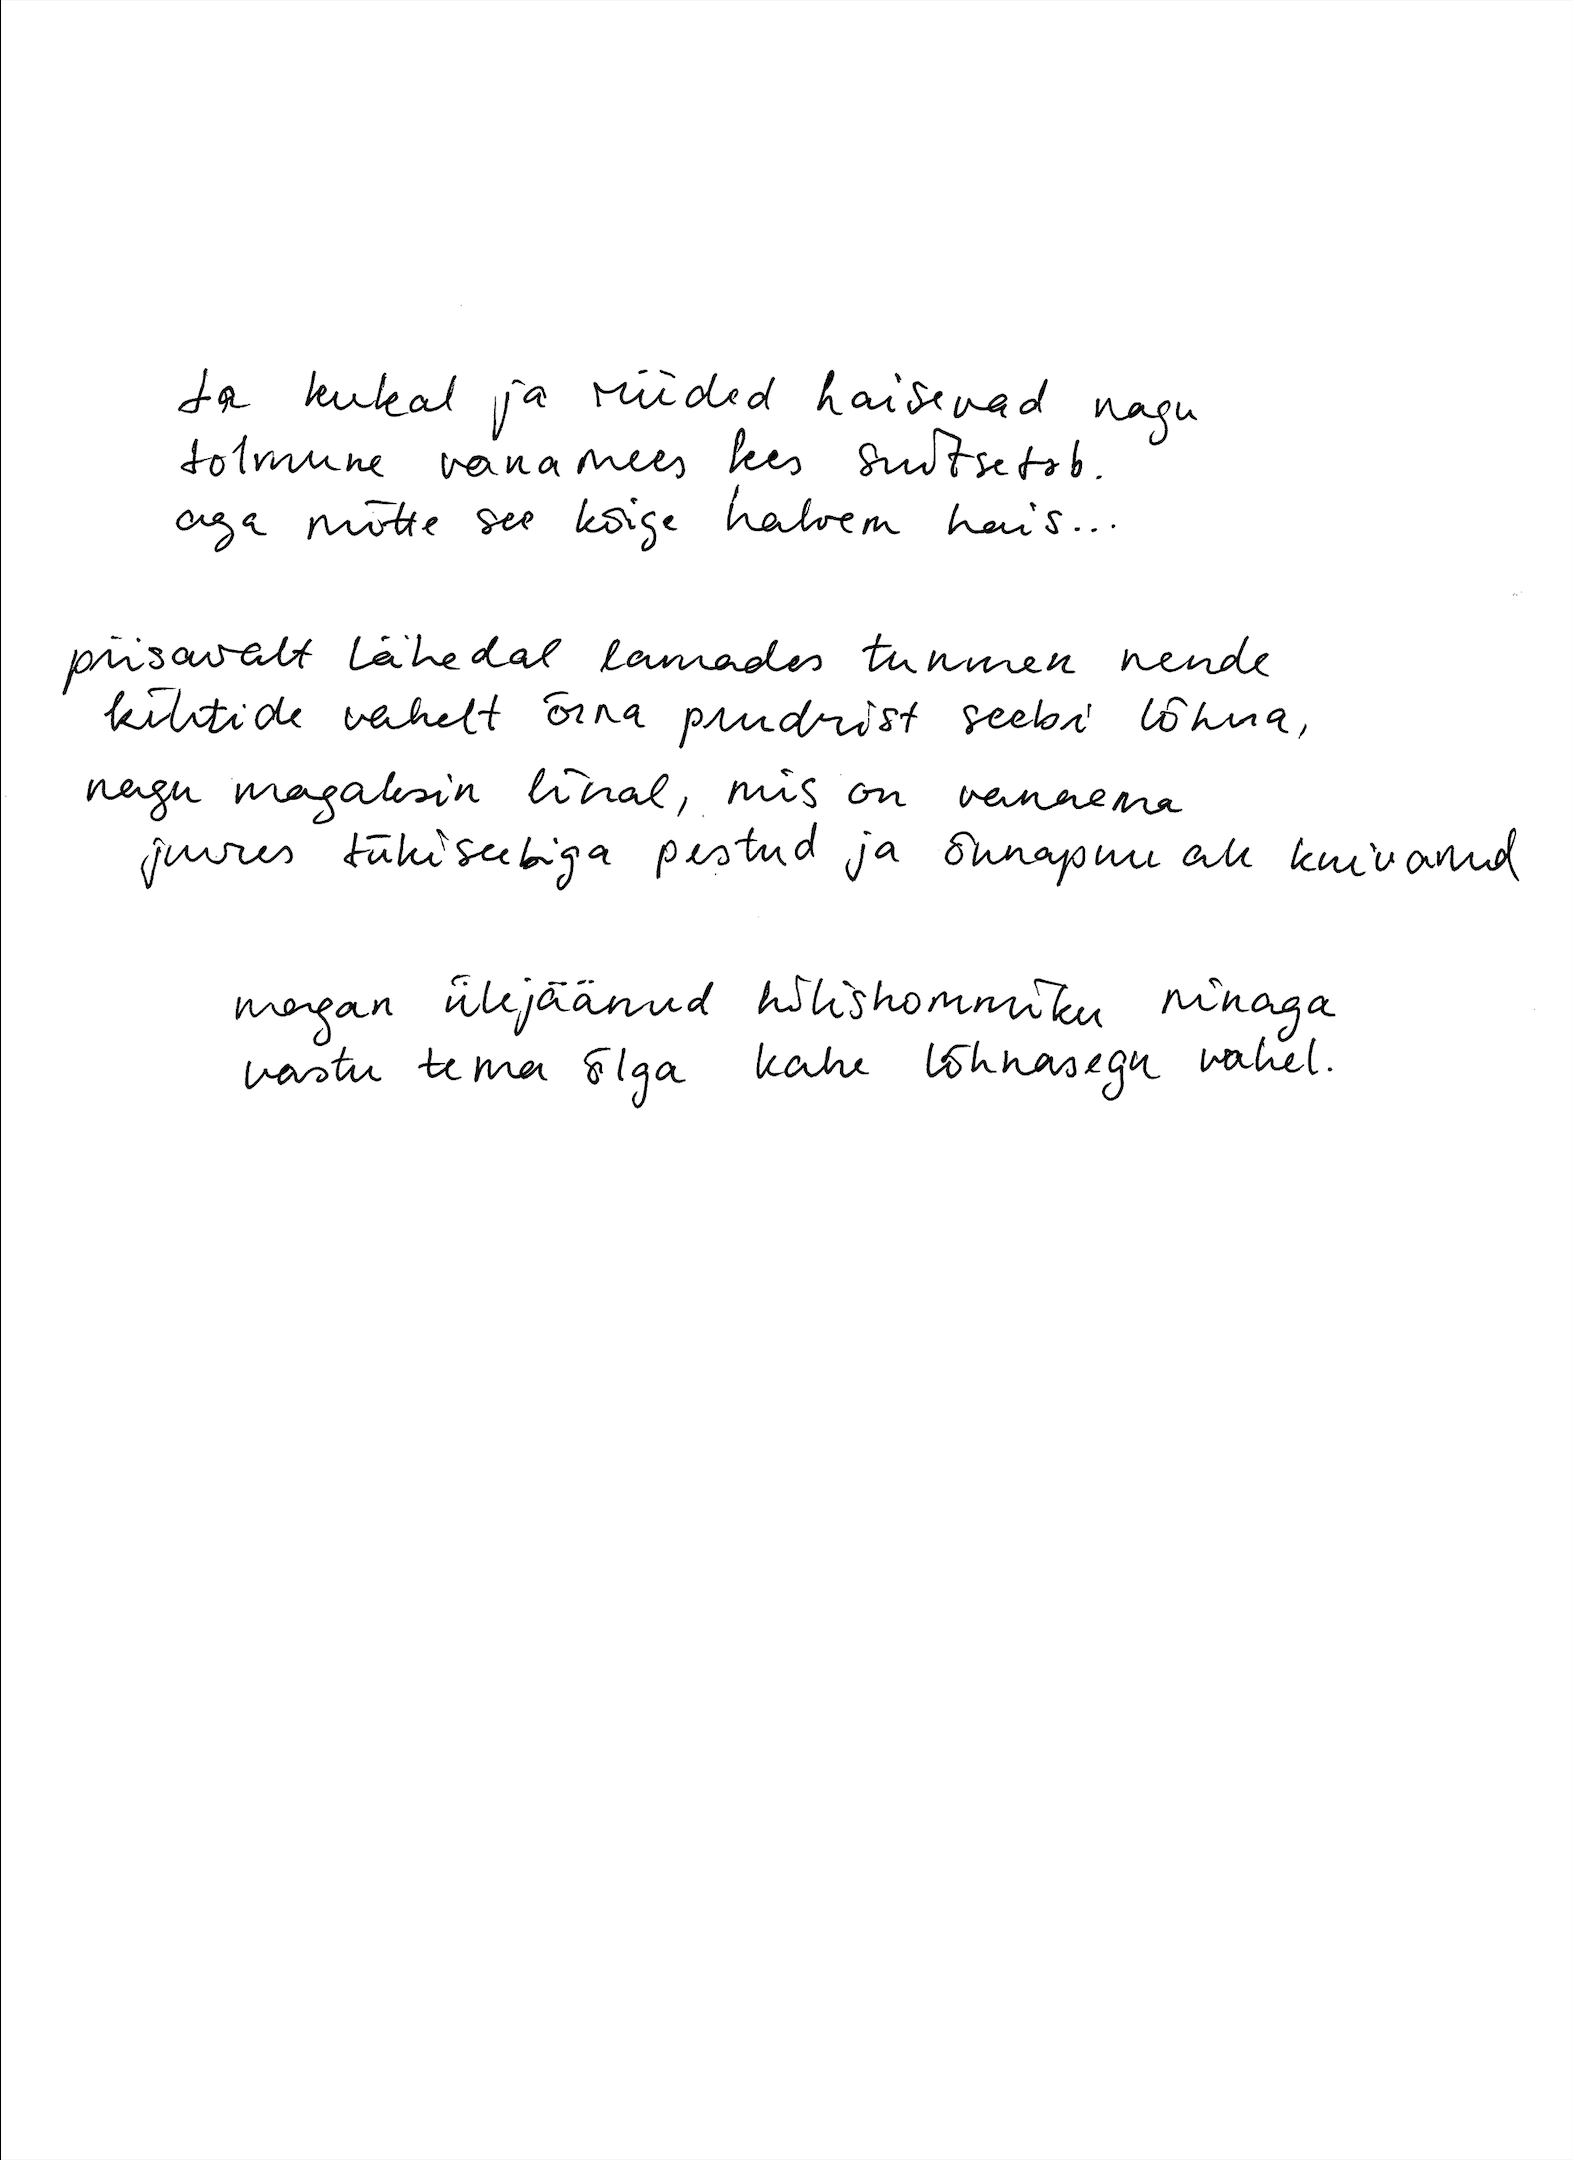 ta kukal ja riided haisevad nagu
tolmune vanamees kes suitsetab.
aga mitte see kõige halvem hais...
piisavalt lähedal lamades tunnen nende
kihtide vahelt õrna puudrist seebi lõhna,
nagu magaksin linal, mis on vanaema
juures tükiseebiga pestud ja õunapuu all kuivanud
magan ülejäänud hilishommiku ninaga
vastu tema õlga kahe lõhnasegu vahel.